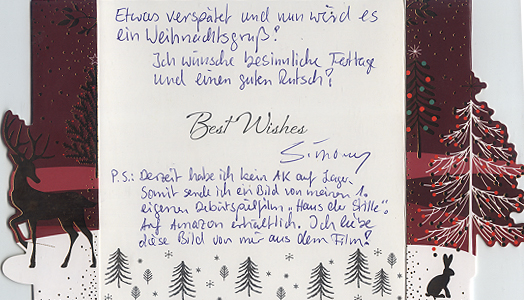 Etwas verspätet und nun wird es
ein Weihnachtsgruß!
Ich wünsche besinnliche Festtage
und einen guten Rutsch!
Best Wishes
P.S.: Derzeit habe ich kein AK auf Lager
somit sende ich ein Bild von meinem 1.
eigenen Debütspielfilm „Haus der Stille".
Auf Amazon erhältlich. Ich liebe
diese Bild von mir aus dem Film!